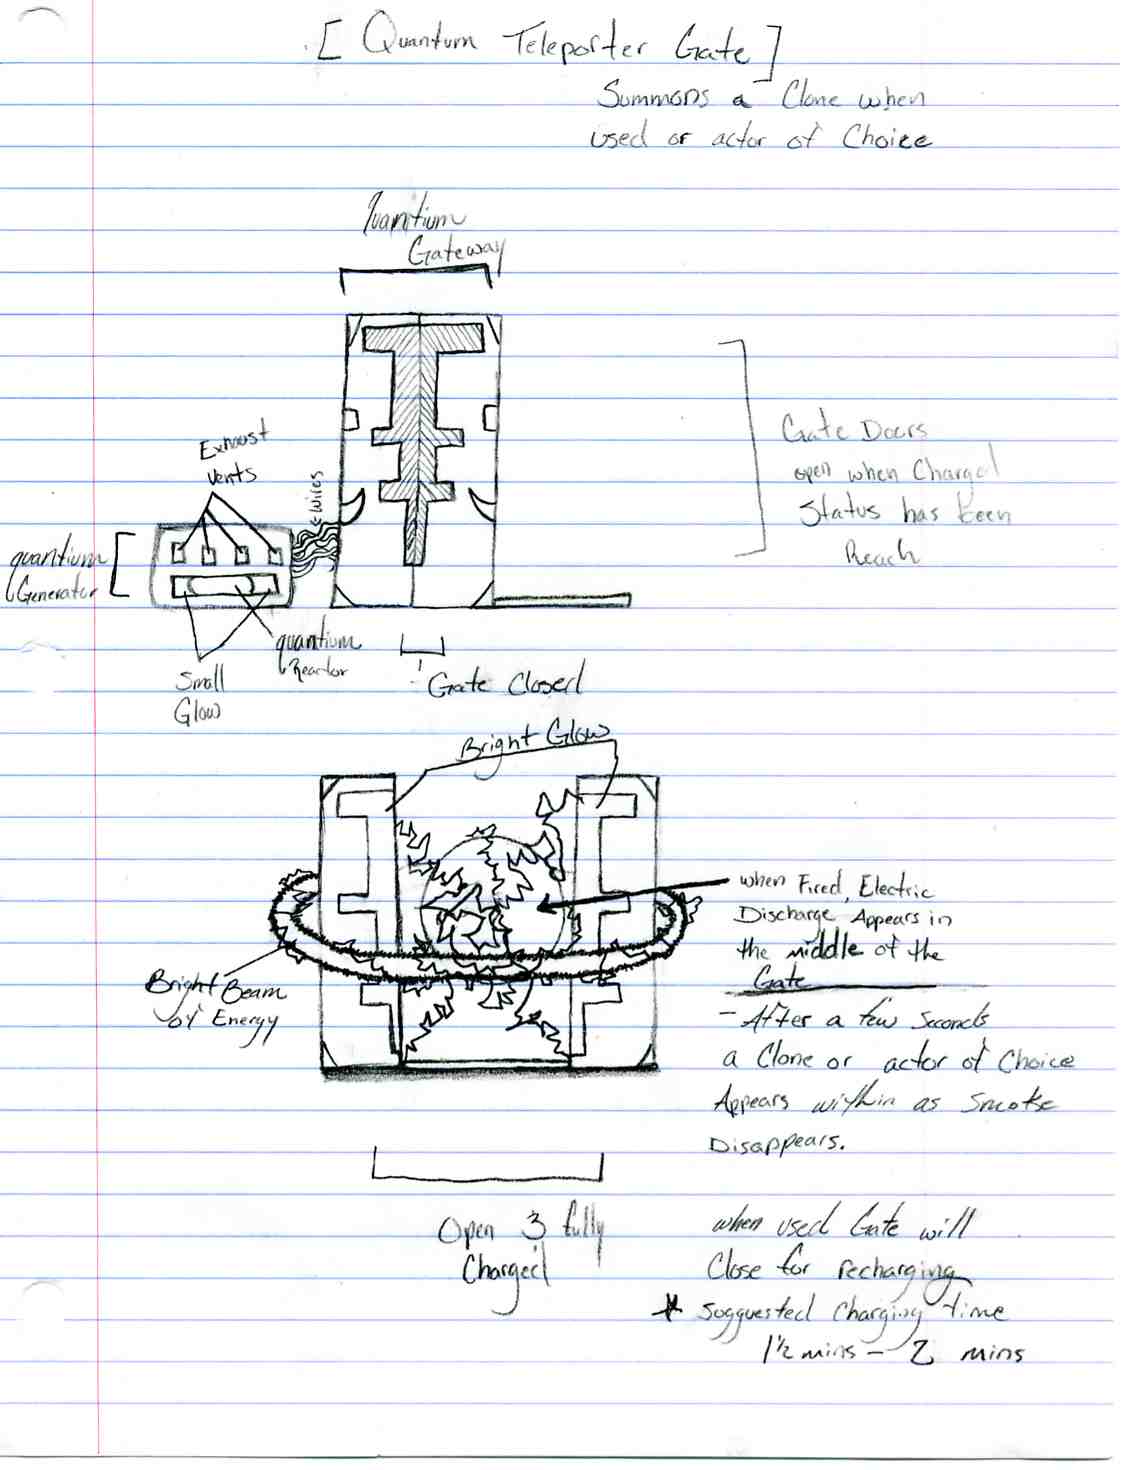 [ Quantum Teleporter Gate ]
Summons a Clone when
used or actor of Choice
Quantium
Gateway
Gate Doors
open when Charged
Status has been
Reach
Exhaust
Vents
Wires
quantium
Generator
quantium
Reactor
Small
Glow
Gate Closed
Bright Glow
when Fired, Electric
Discharge Appears in
the middle of the
Gate
- After a few Seconds
a Clone or actor of Choice
Appears within as Smoke
Disappears.
Bright Beam
of Energy
Open 3 fully
Charged
when used Gate will
Close for recharging
* Sugguested Charging time
1½ mins - 2 mins